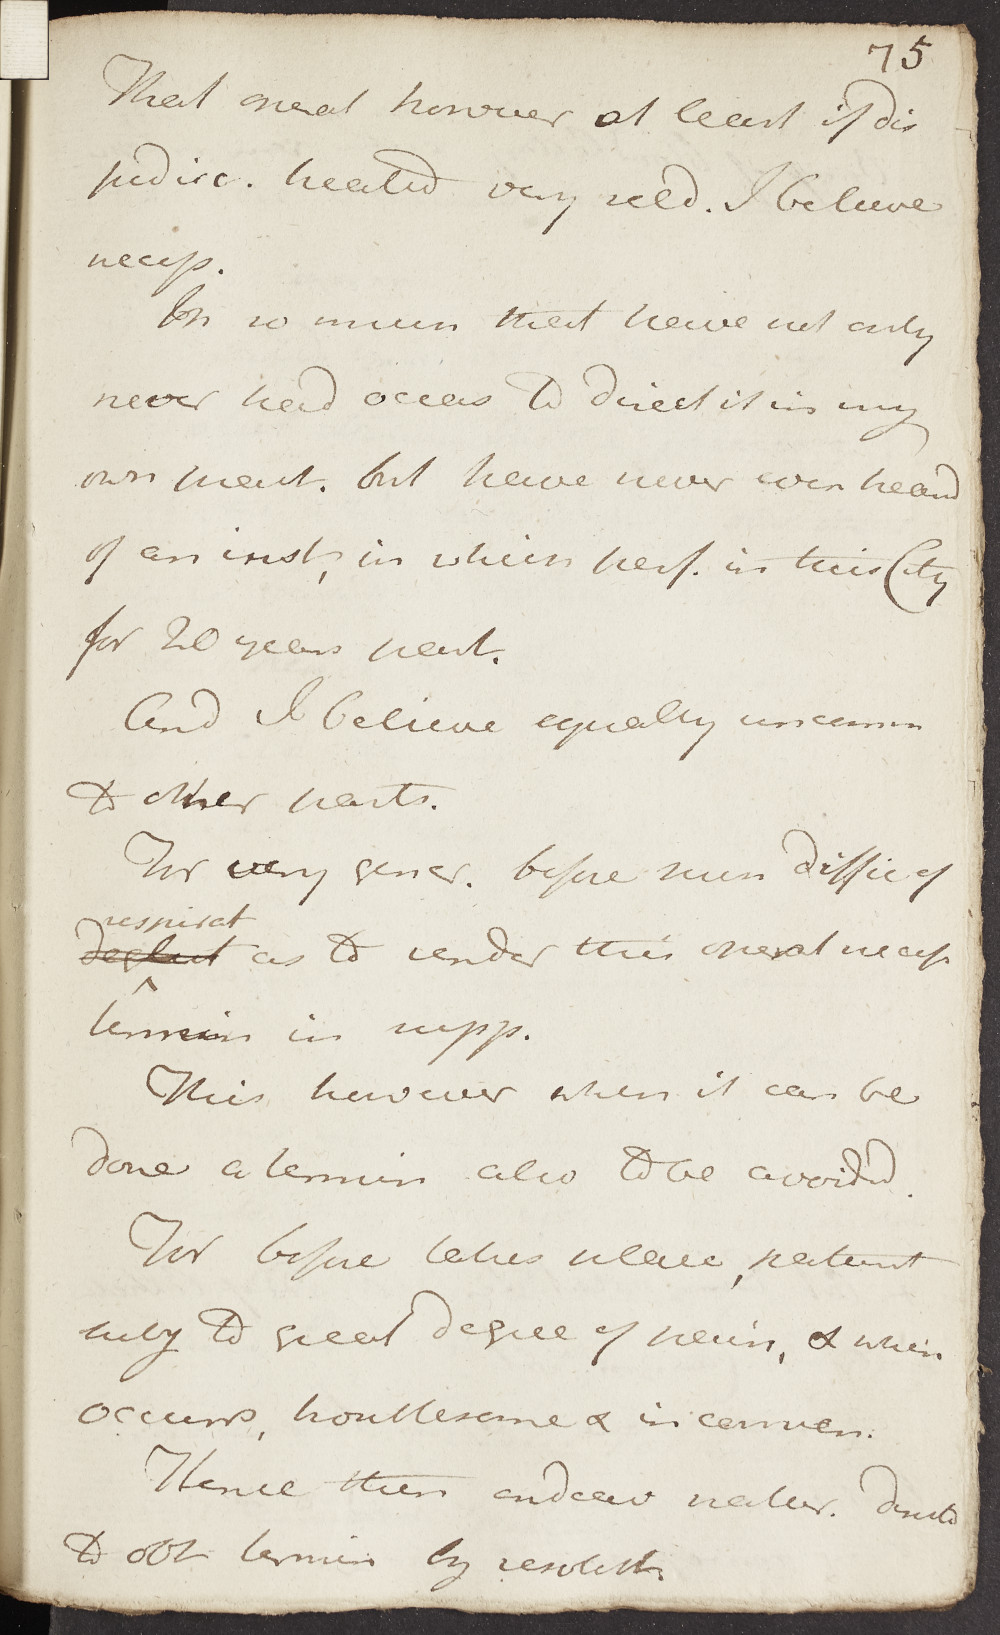 75
That operat however at least if dis
judisc. treated very seld. I believe
necess.
In so mu​ch that have not only
never had occas to direct it in my
own pract. but have never even heard
of an inst, in which perf. in this City
for 20 years past.
And I believe equally uncomn
to other parts.
For very gener. before such diffic of
respirat
deglut as to render this operat necess
termin in supp.
This however when it can be
done a termin also to be avoided.
For before takes place, patient
subj to great degree of pain, & when
occurs, troublesome & inconven.
Hence then endeav natur. directd
to obt termin by resolut.